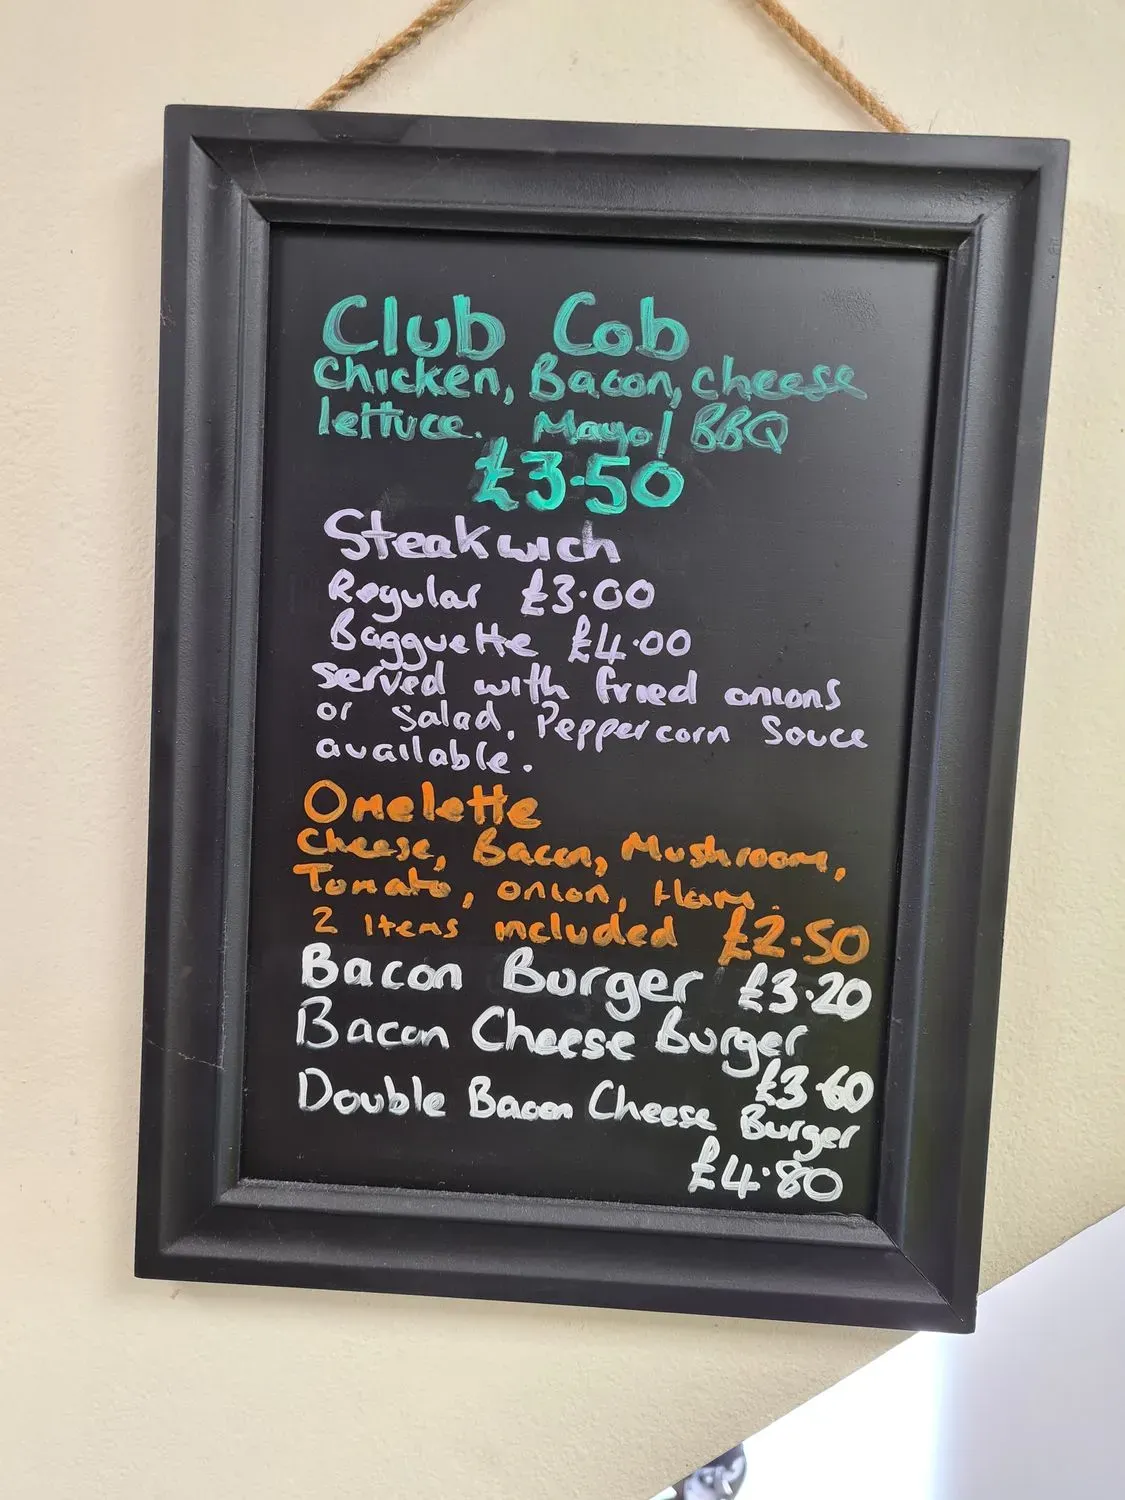 Club Cob
Chicken, Bacon, cheese
lettuce. Mayo/ BBQ
£3.50
Steakwich
Regular £3.00
Bagguette £4.00
served with fried onions
or salad. Peppercorn Sauce
available.
Omelette
Cheese, Bacon, Mushroom,
Tomato, onion, Ham.
2 Items included £2.50
Bacon Burger £3.20
Bacon Cheese Burger
£3.60
Double Bacon Cheese Burger
£4.80